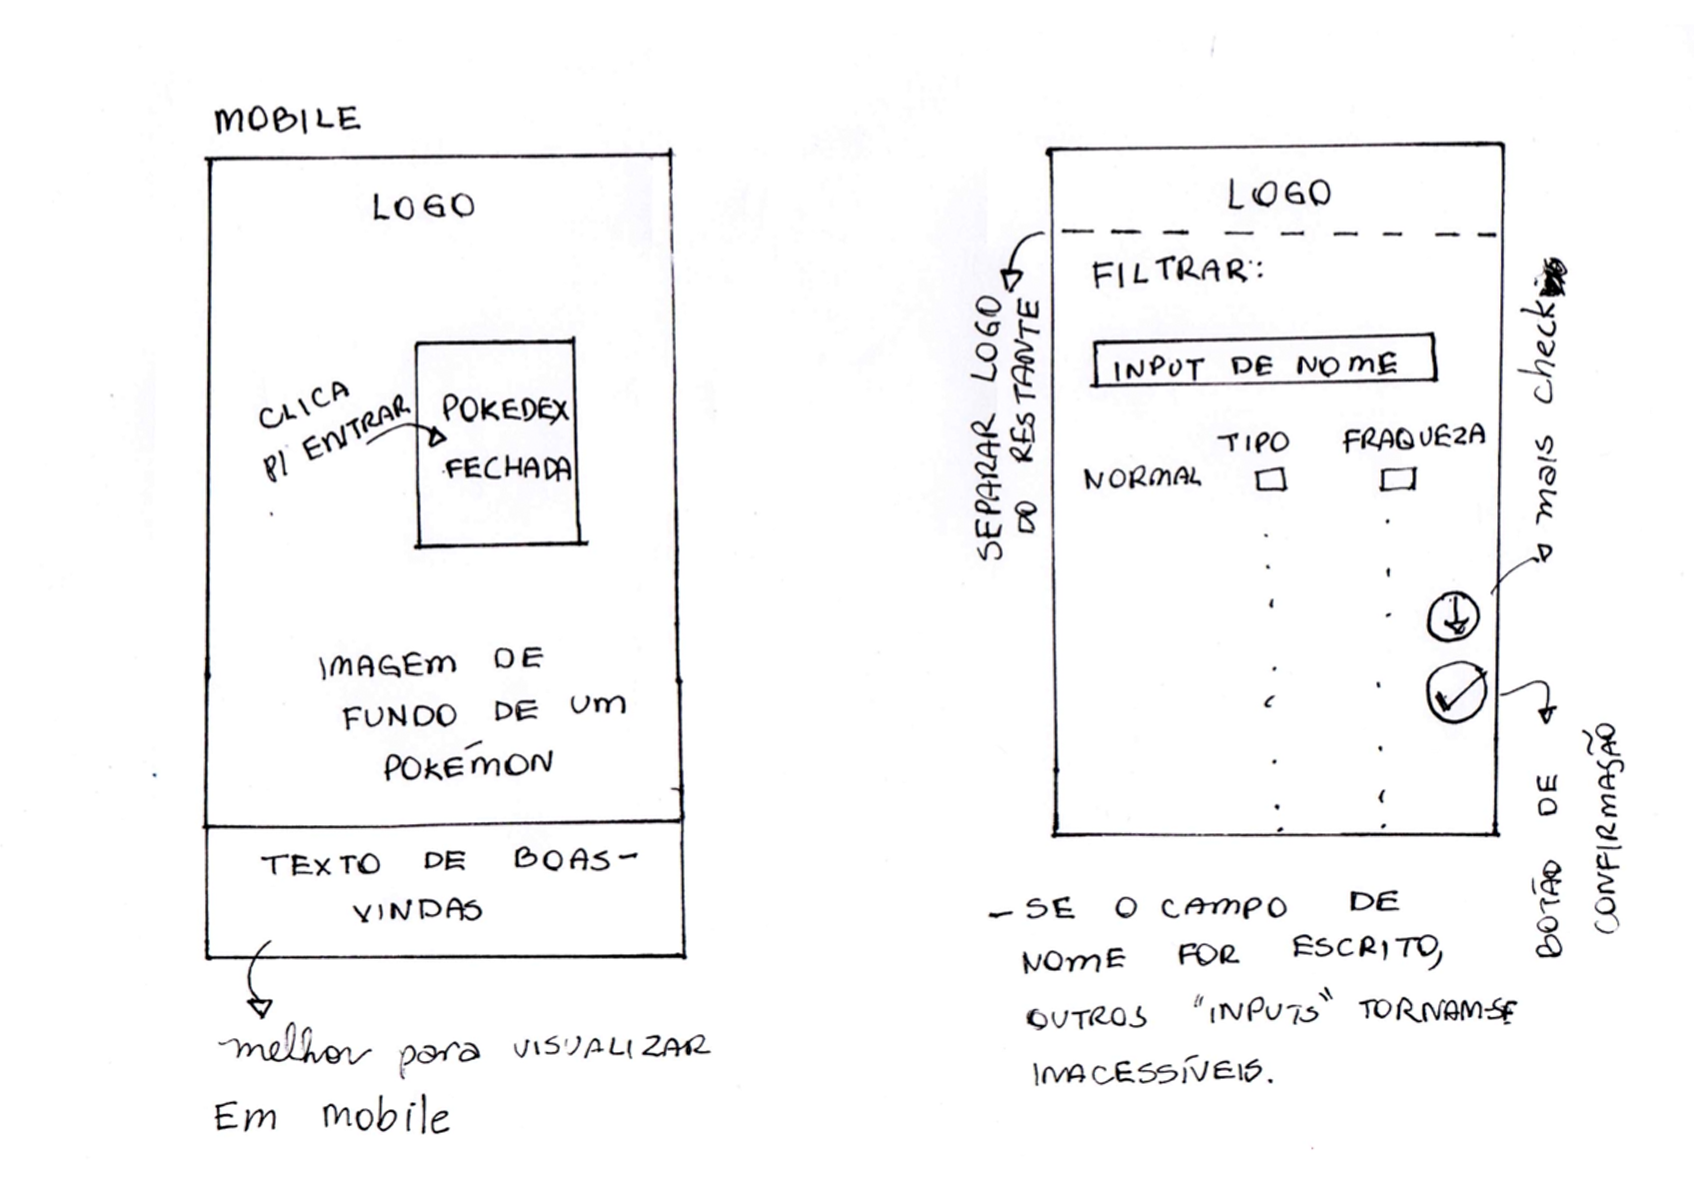 MOBILE
LOGO
CLICA
P/ ENTRAR
POKEDEX
FECHADA
IMAGEM DE
FUNDO DE UM
POKÉMON
TEXTO DE BOAS-
VINDAS
melhor para VISUALIZAR
Em mobile
LOGO
SEPARAR LOGO
DO RESTANTE
FILTRAR:
INPUT DE NOME
TIPO FRAQUEZA
NORMAL
mais check
BOTÃO DE
CONFIRMAÇÃO
- SE O CAMPO DE
NOME FOR ESCRITO,
OUTROS "INPUTS" TORNAM-SE
INACESSÍVEIS.